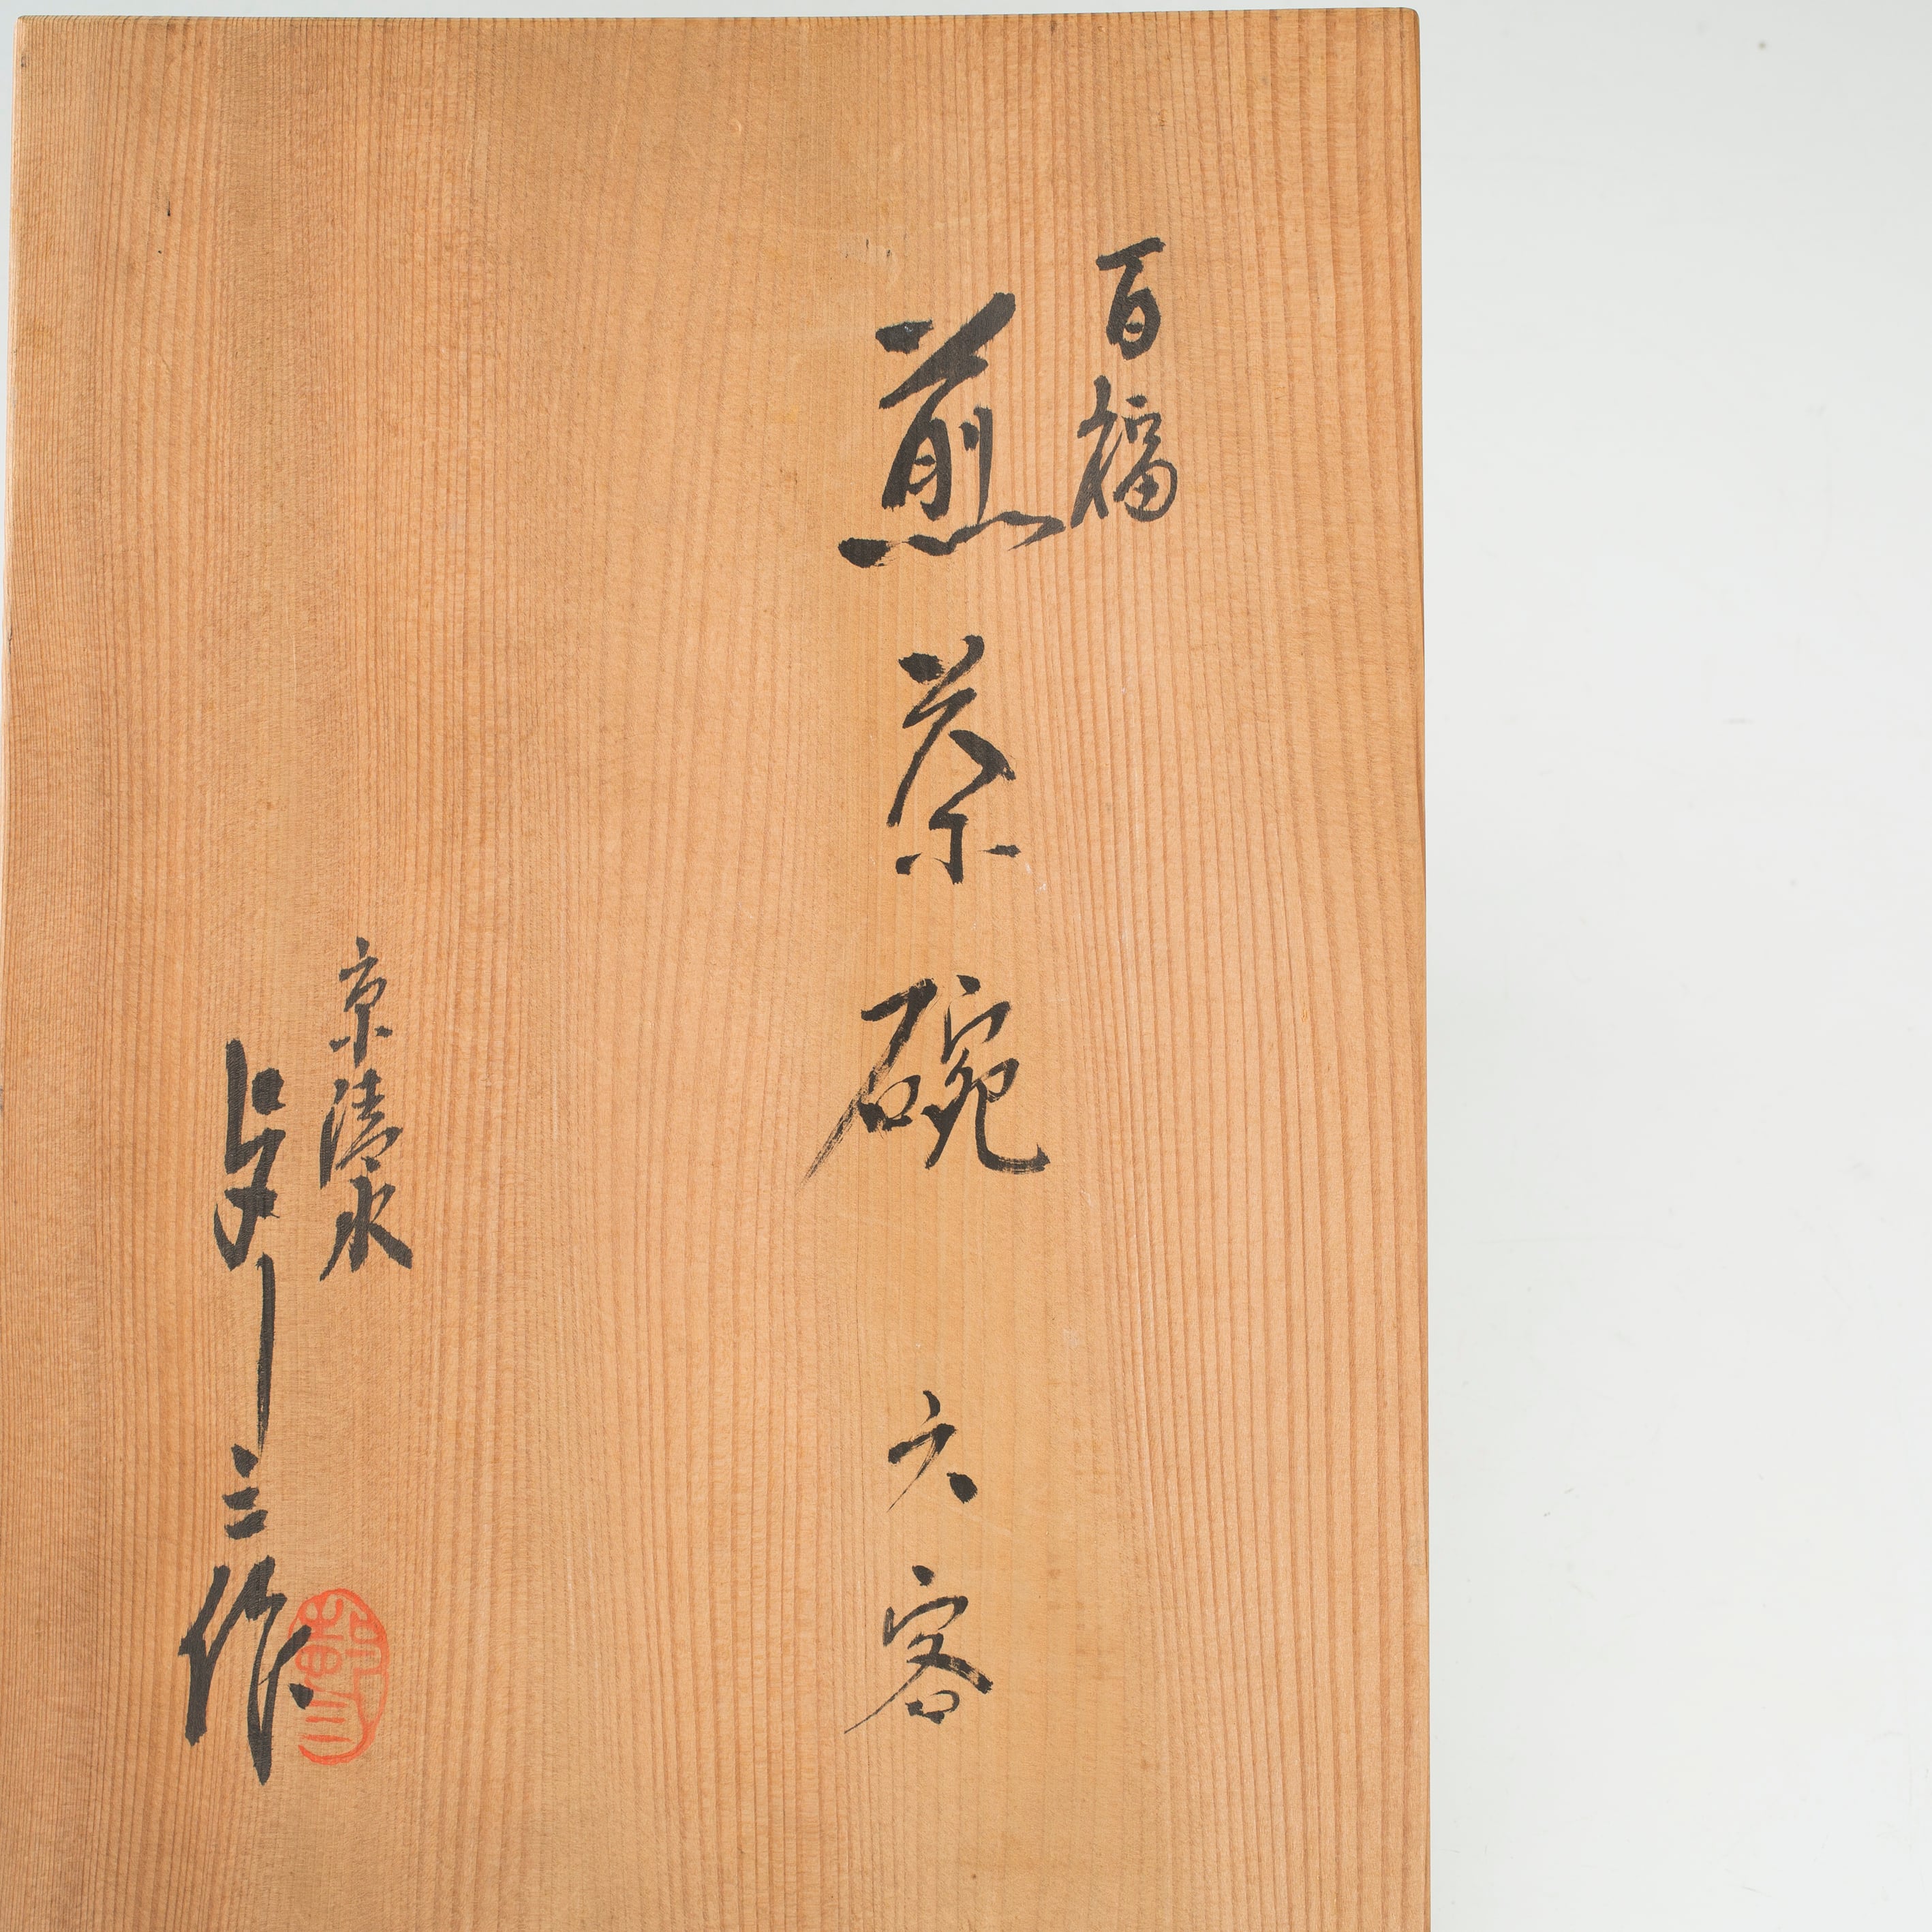 百福
煎茶碗 六客
京清水
三作